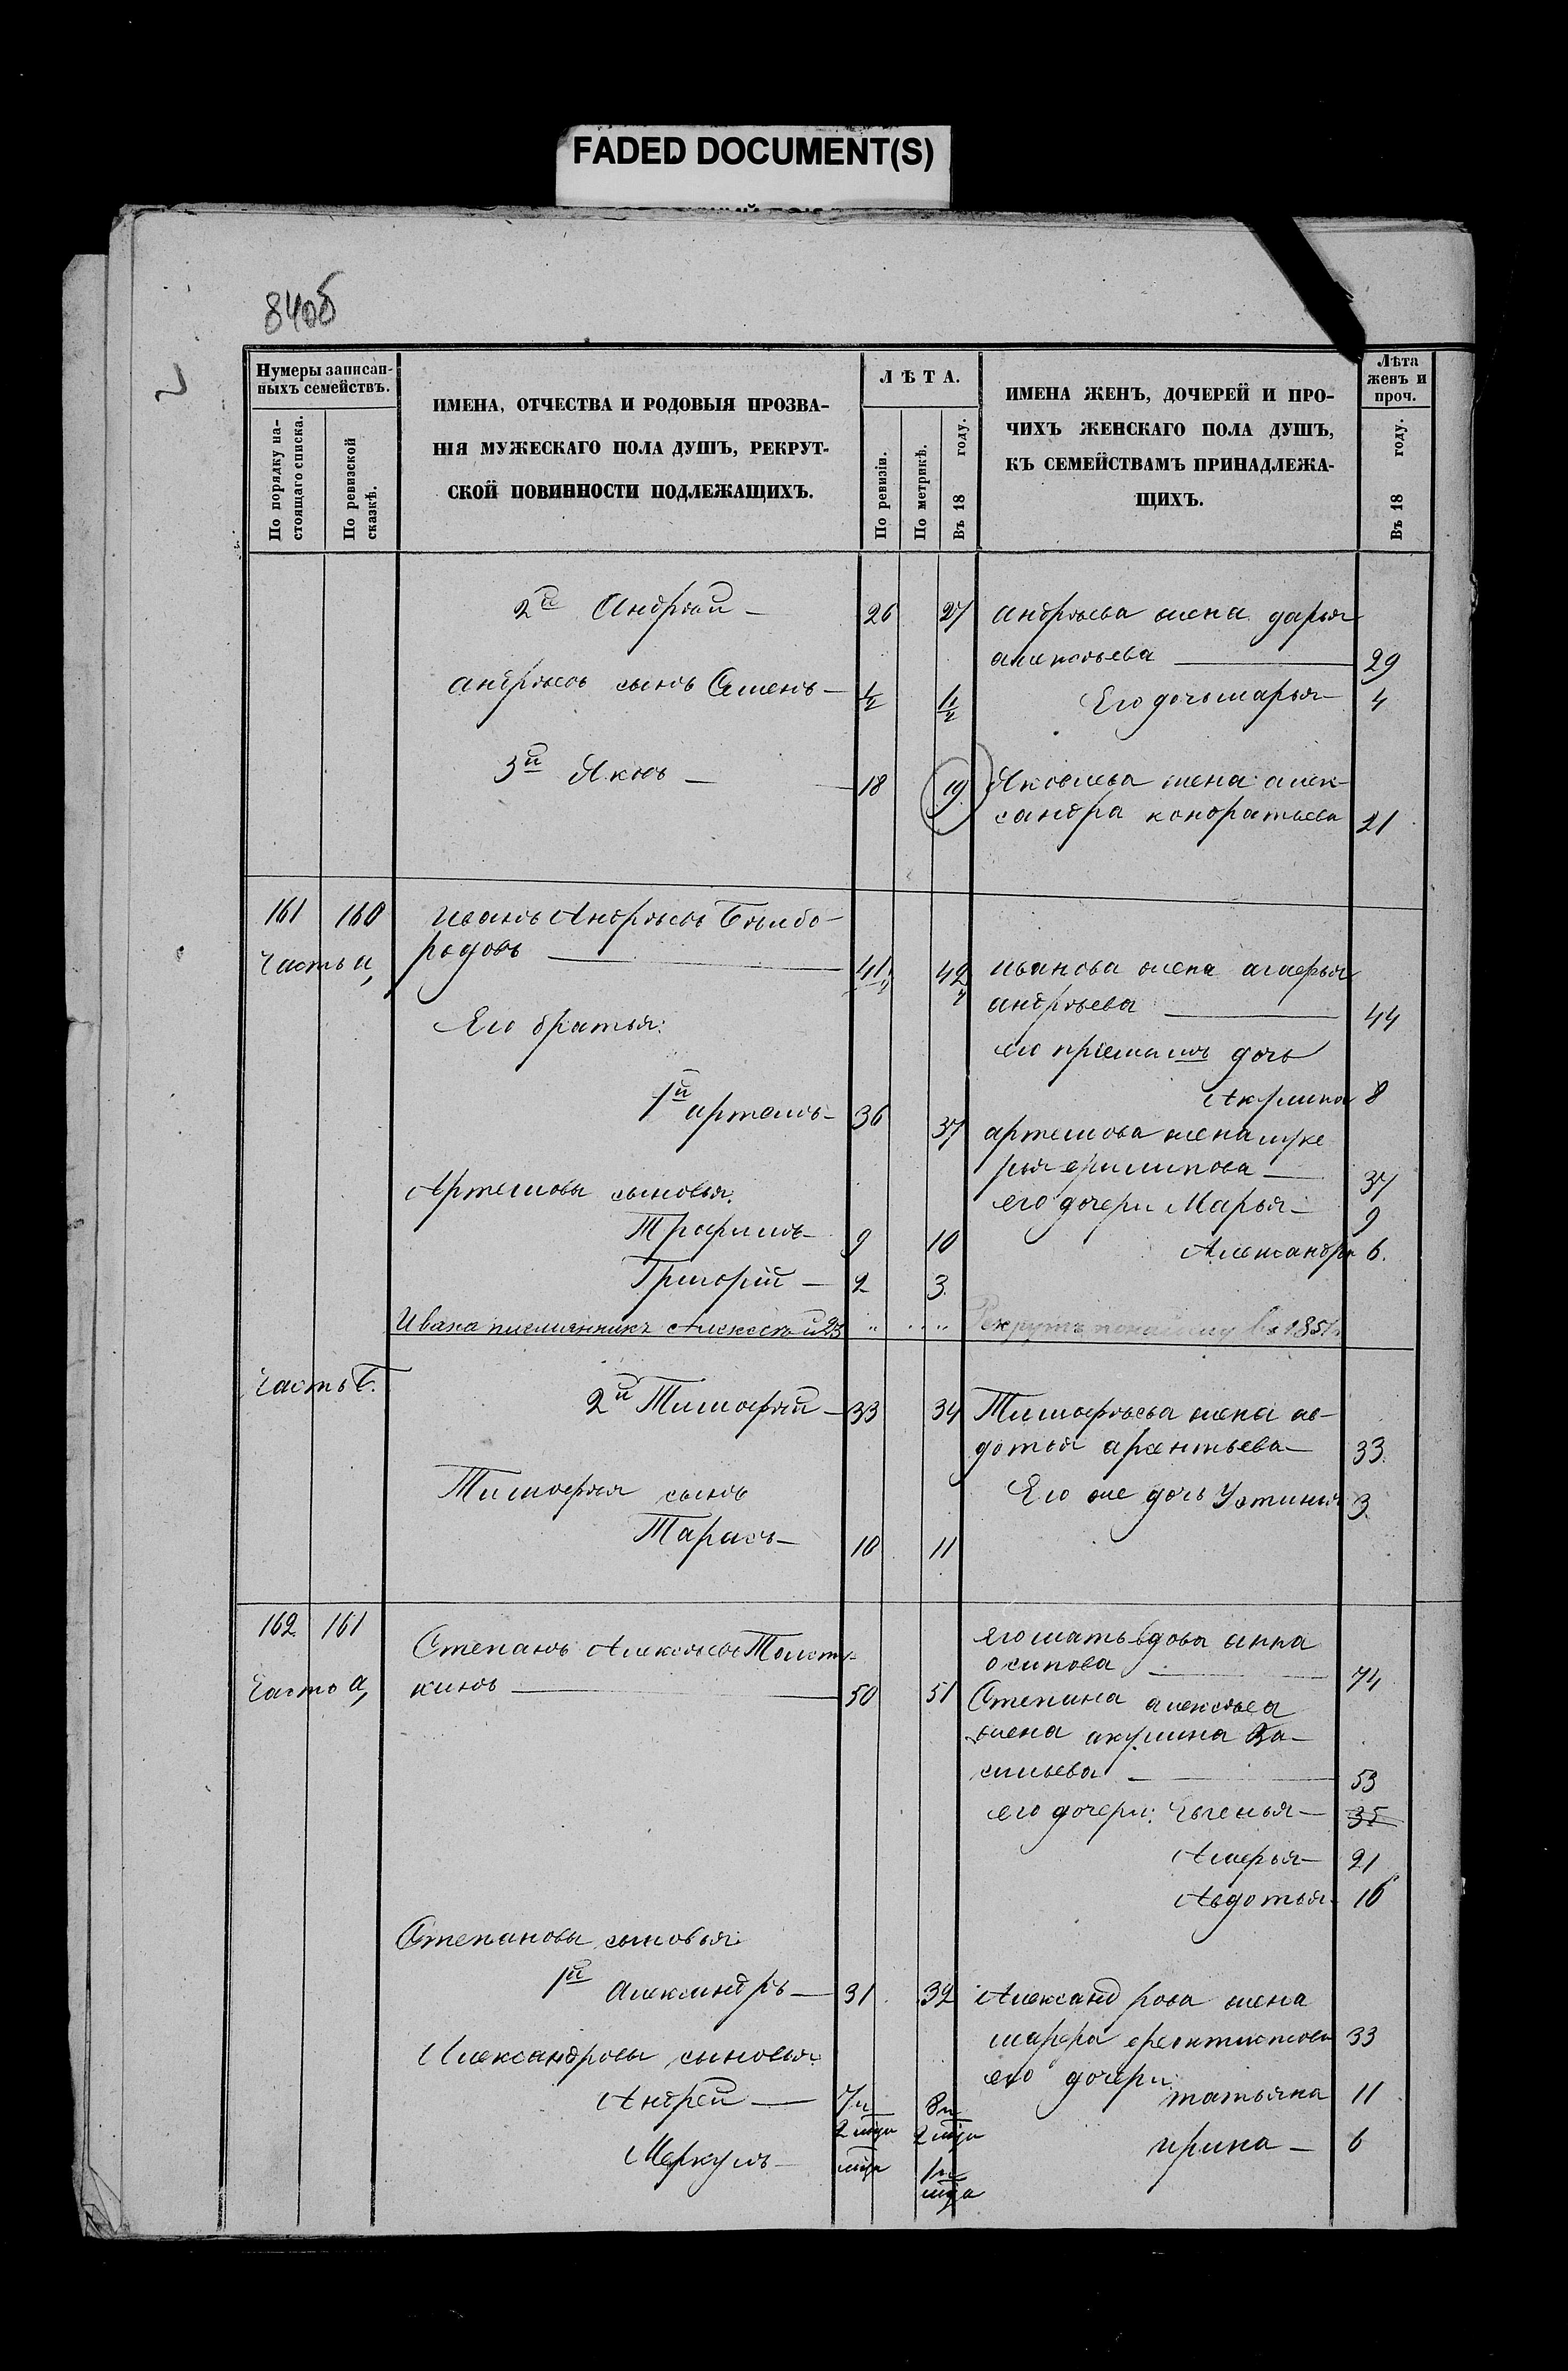 FADED DOCUMENT(S)
84об
Нумеры записан-
ныхъ семействъ.
По порядку на-
стоящаго списка.
По ревизской
сказкѣ.
ИМЕНА, ОТЧЕСТВА И РОДОВЫЯ ПРОЗВА-
НІЯ МУЖЕСКАГО ПОЛА ДУШЪ, РЕКРУТ-
СКОЙ ПОВИННОСТИ ПОДЛЕЖАЩИХЪ.
ЛѢТА.
По ревизіи.
По метрикѣ.
Въ 18 году.
ИМЕНА ЖЕНЪ, ДОЧЕРЕЙ И ПРО-
ЧИХЪ ЖЕНСКАГО ПОЛА ДУШЪ,
КЪ СЕМЕЙСТВАМЪ ПРИНАДЛЕЖА-
ЩИХЪ.
Лѣта
женъ и
проч.
Въ 18 году.
2й Андрѣй — 26 27 андрѣева жена дарья
алексѣева — 29
андрѣевъ сынъ Семенъ —
Его дочь марья — 4
3й Яковъ — 18 19 Яковлева жена алек-
сандра кондратьева 21
161 160 иванъ Андрѣевъ Бѣлобо-
родовъ — 41 42 иванова жена агафья
Часть а,
андрѣева — 44
Его братья:
его пріемышъ дочь
Акулина 8
1й артемъ — 36 37 артемова жена луке
рья филипова — 37
Артемовы сыновья:
его дочери Марья — 9
Трофимъ — 9 10
Александра 6.
Григорій — 2 3
Ивана племянникъ Алексѣй 23 „ „ Рекрутъ въ 1857
Часть Б.
2й Тимофѣй — 33 34 Тимофѣева жена ав-
дотья арсентьева — 33
Тимофѣя сынъ
Его же дочь Устинья 3
Тарасъ — 10 11
162 161
Степанъ Алексѣевъ
кинъ — 50 51
Часть а,
его мать вдова анна
осипова — 74
Степана алексѣева
жена акулина Ва-
сильева — 53
его дочери: Евгенья — 35
Агафья — 21
Авдотья — 16
Степановы сыновья:
1й александръ — 31 32 Александрова жена
марфа феоктистова 33
Александровы сыновья:
его дочери:
татьяна 11
Андрей — 7и 2 мѣца 8и 2 мѣца
ирина — 6
Меркулъ — мѣца 1и мѣца